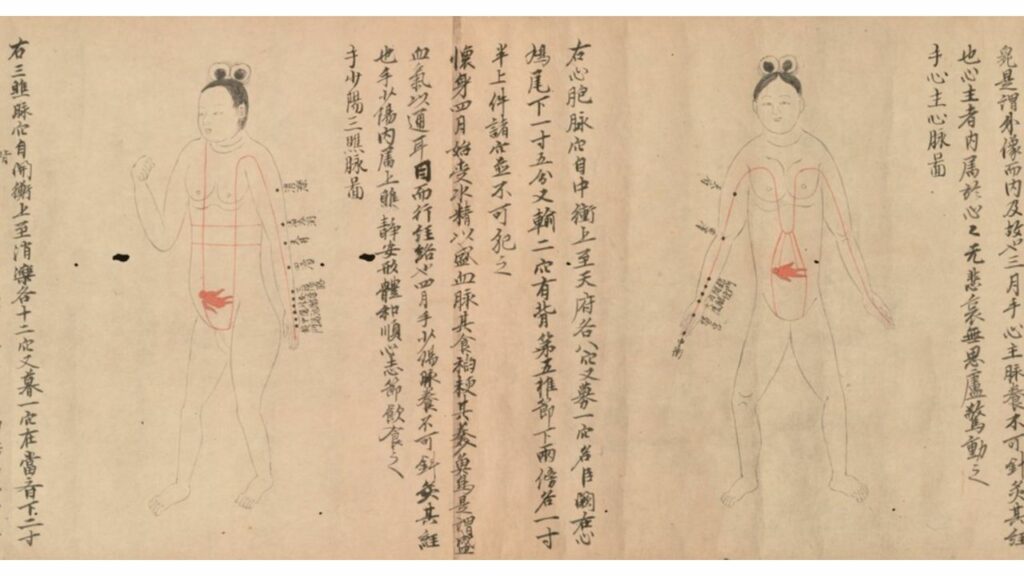 是謂外像而内及故也三月手心主脉養不可針灸其經
也心主者内属於心々无悲哀無思慮驚動之
手心主心脉圖
右心胞脉穴自中衝上至天府各八穴又募一穴名巨闕在心
鳩尾下一寸五分又輸二穴有背第五椎節下兩傍各一寸
半上件諸穴並不可犯之
懐身四月始受水精以盛血脉其食稻粳其羹魚鴈是謂盛
血氣以通耳目而行經絡也四月手少陽脉養不可針灸其經
也手少陽内属上膲静安形體和順心志節飲食之
手少陽三膲脉圖
右三膲脉穴自開衝上至消濼各十二穴又募一穴在當斉下二寸